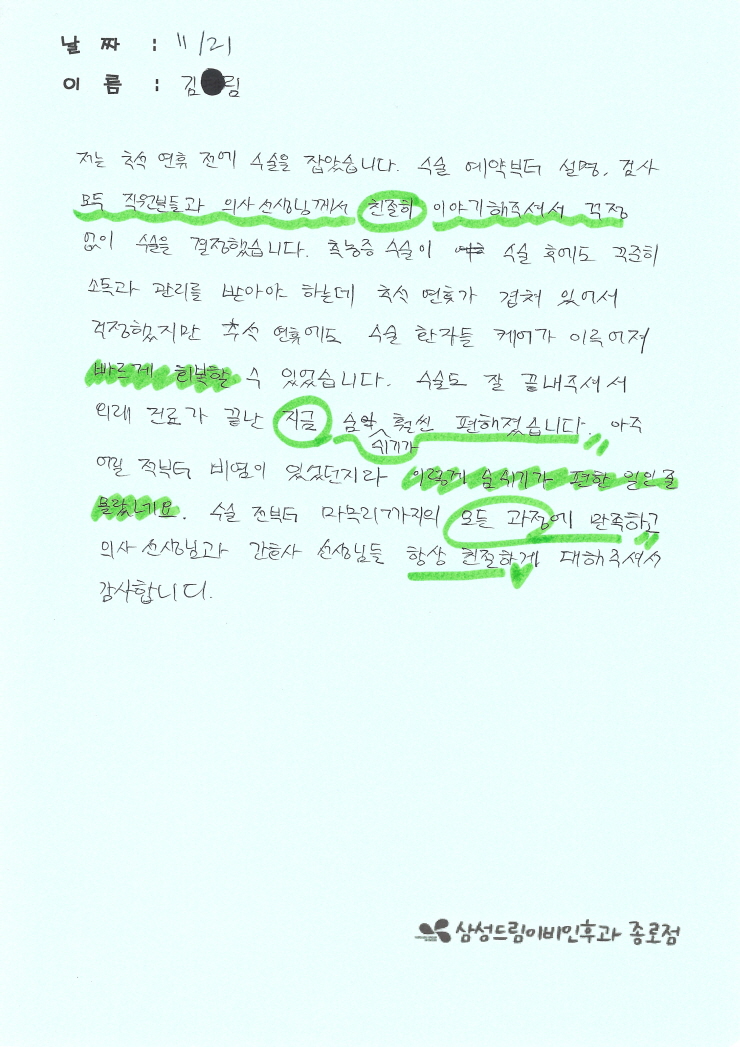 날 짜 : 11/21
이 름 : 김 림
저는 추석 연휴 전에 수술을 잡았습니다. 수술 예약부터 설명, 검사
모두 직원분들과 의사선생님께서 친절히 이야기해주셔서 걱정
없이 수술을 결정했습니다. 축농증 수술이 수술 후에도 꾸준히
소독과 관리를 받아야 하는데 추석 연휴가 겹쳐 있어서
걱정했지만 추석 연휴에도 수술 환자들 케어가 이루어져
빠르게 회복할 수 있었습니다. 수술도 잘 끝내주셔서
외래 진료가 끝난 지금 숨 쉬기가 훨씬 편해졌습니다. 아주
어릴 적부터 비염이 있었던지라 이렇게 숨쉬기가 편한 일인줄
몰랐네요. 수술 전부터 마무리까지의 모든 과정에 만족하고
의사선생님과 간호사 선생님들 항상 친절하게 대해주셔서
감사합니다.
삼성드림이비인후과 종로점